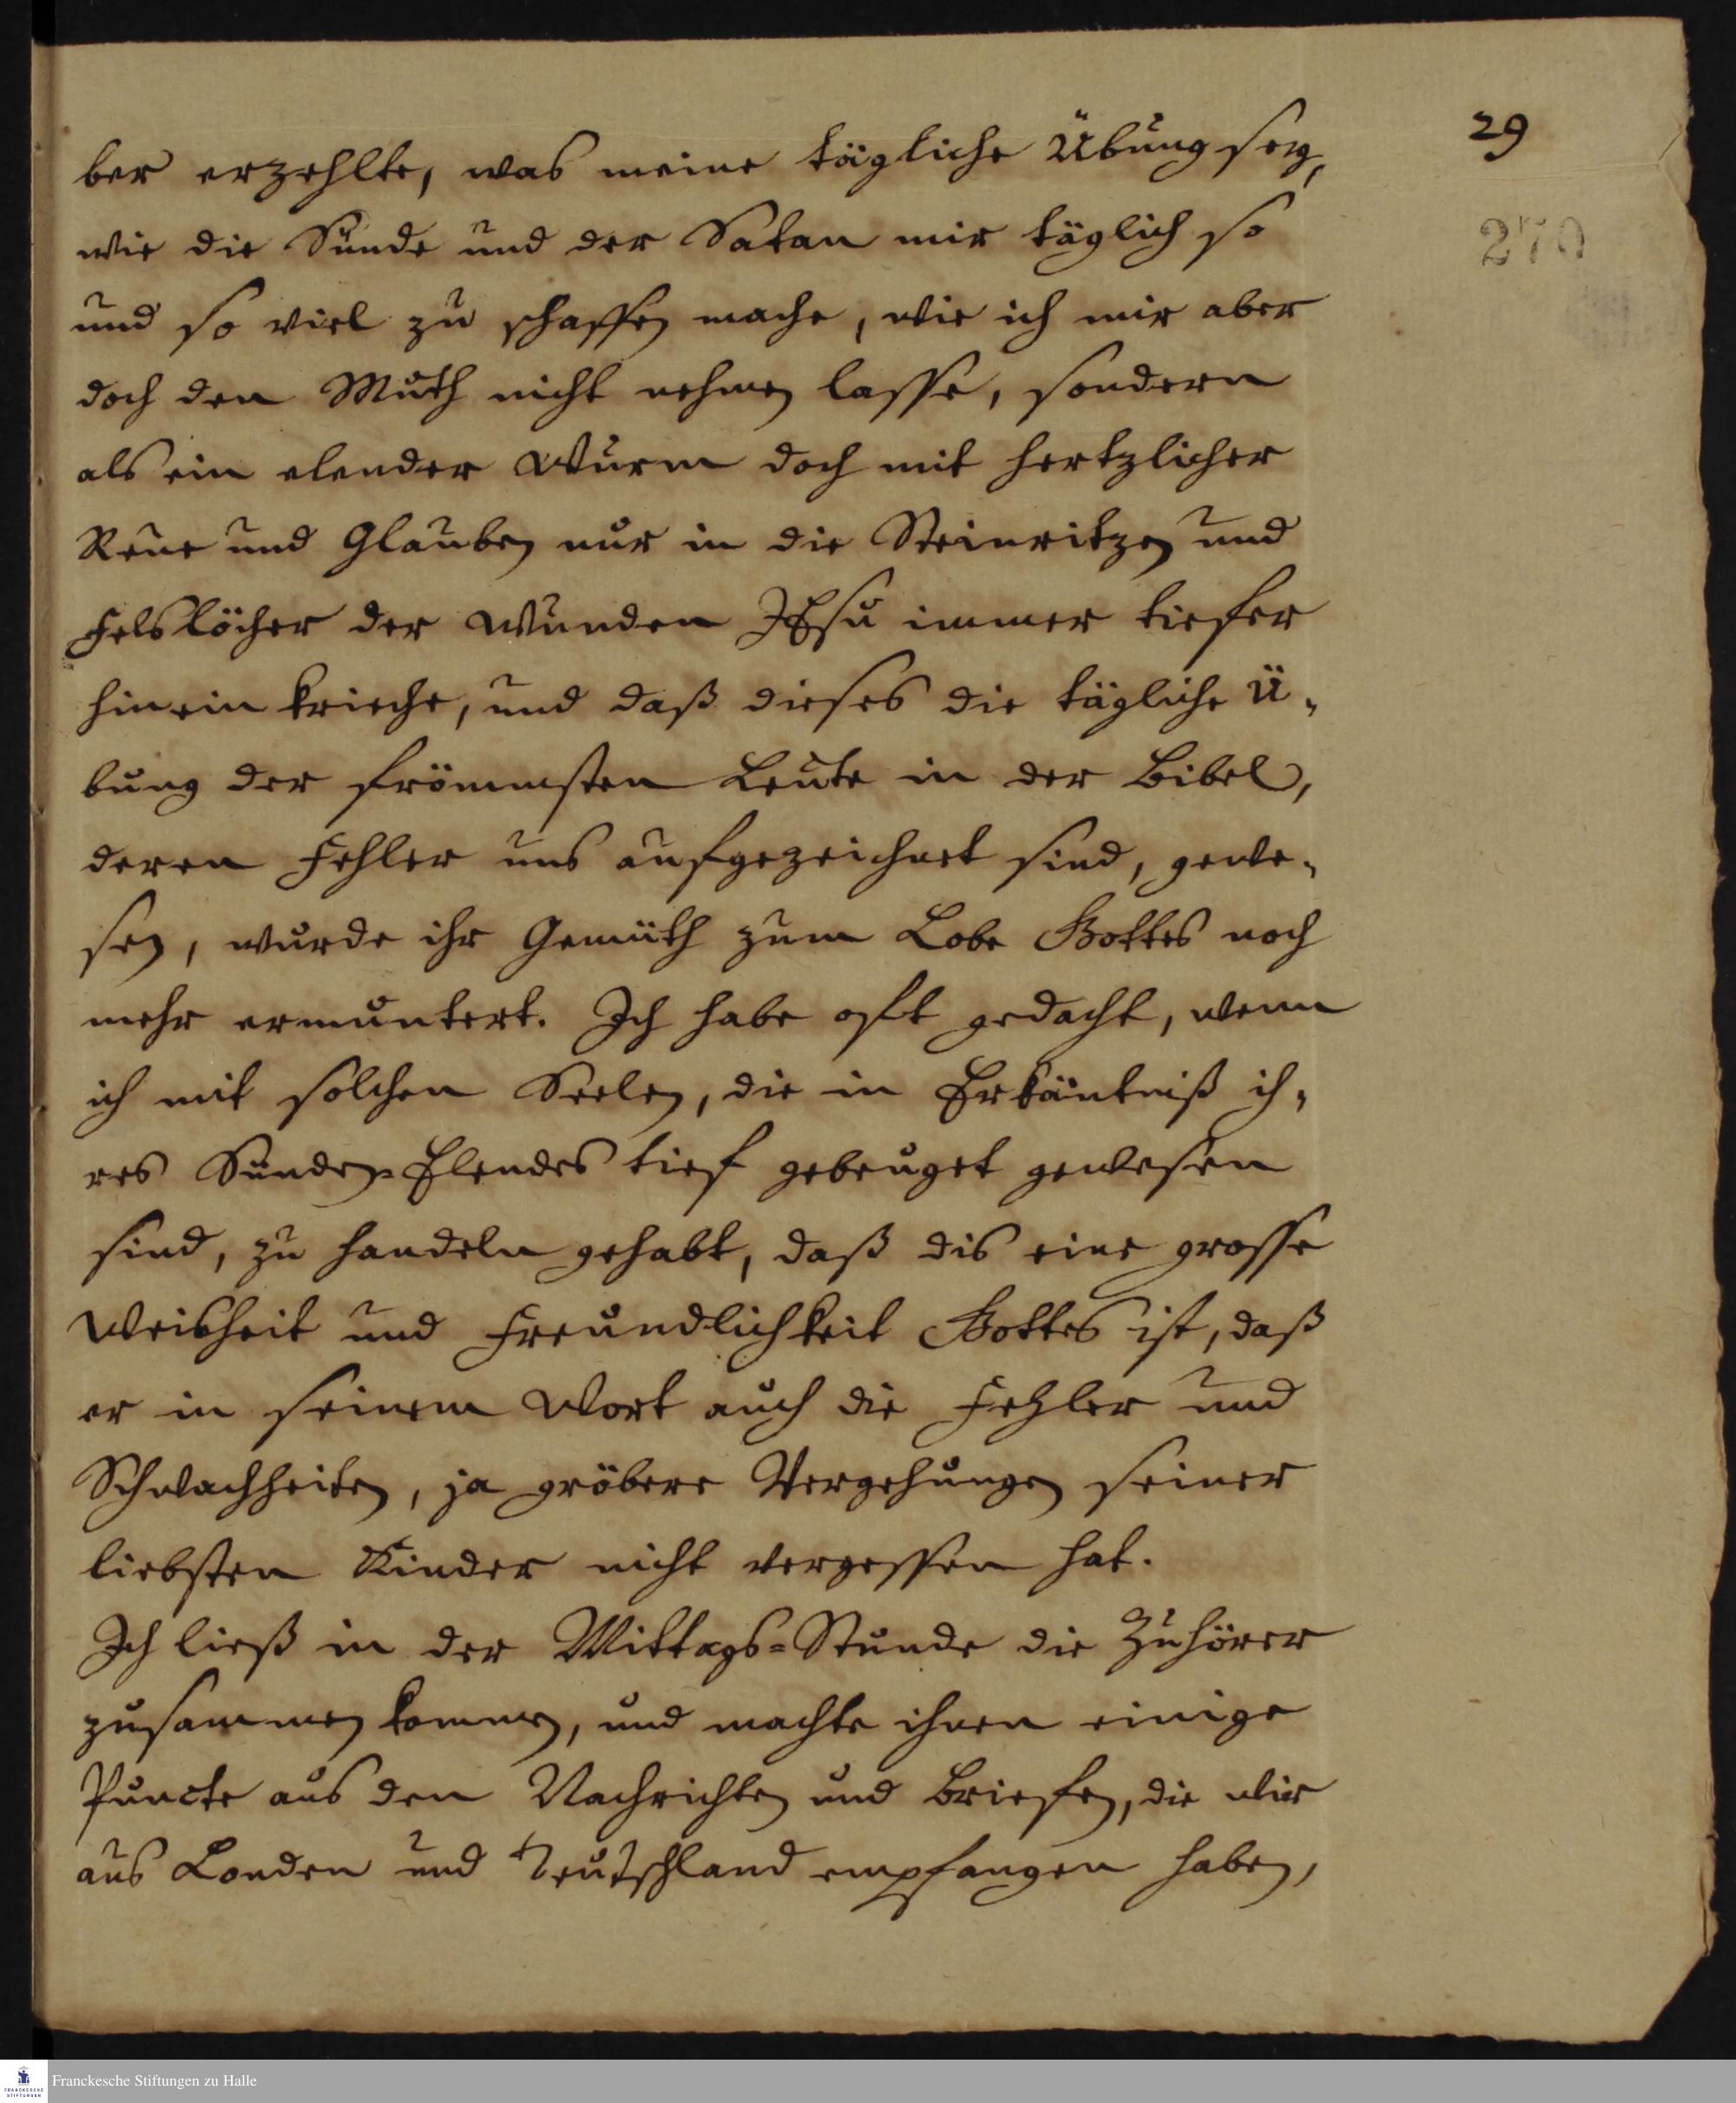 29
270
ber erzehlte, was meine tägliche Übung sey,
wie die Sünde und der Satan mir täglich so
und so viel zu schaffen mache, wie ich mir aber
doch den Muth nicht nehmen lasse, sondern
als ein elender Wurm doch mit hertzlicher
Reue und Glauben nur in die Steinritzen und
Felslöcher der Wunden JEsu immer tiefer
hinein krieche, und daß dieses die tägliche Ü-
bung der frömmsten Leute in der Bibel,
deren Fehler uns aufgezeichnet sind, gewe-
sen, wurde ihr Gemüth zum Lobe Gottes noch
mehr ermuntert. Ich habe oft gedacht, wenn
ich mit solchen Seelen, die in Erkäntniß ih-
res Sünden-Elendes tief gebeuget gewesen
sind, zu handeln gehabt, daß dis eine grosse
Weisheit und Freundlichkeit Gottes ist, daß
er in seinem Wort auch die Fehler und
Schwachheiten, ja gröbere Vergehungen seiner
liebsten Kinder nicht vergessen hat.
Ich ließ in der Mittags-Stunde die Zuhörer
zusammen kommen, und machte ihnen einige
Puncte aus den Nachrichten und Briefen, die wir
aus Londen und Teutschland empfangen haben,
FRANCKESCHE
STIFTUNGEN
Franckesche Stiftungen zu Halle